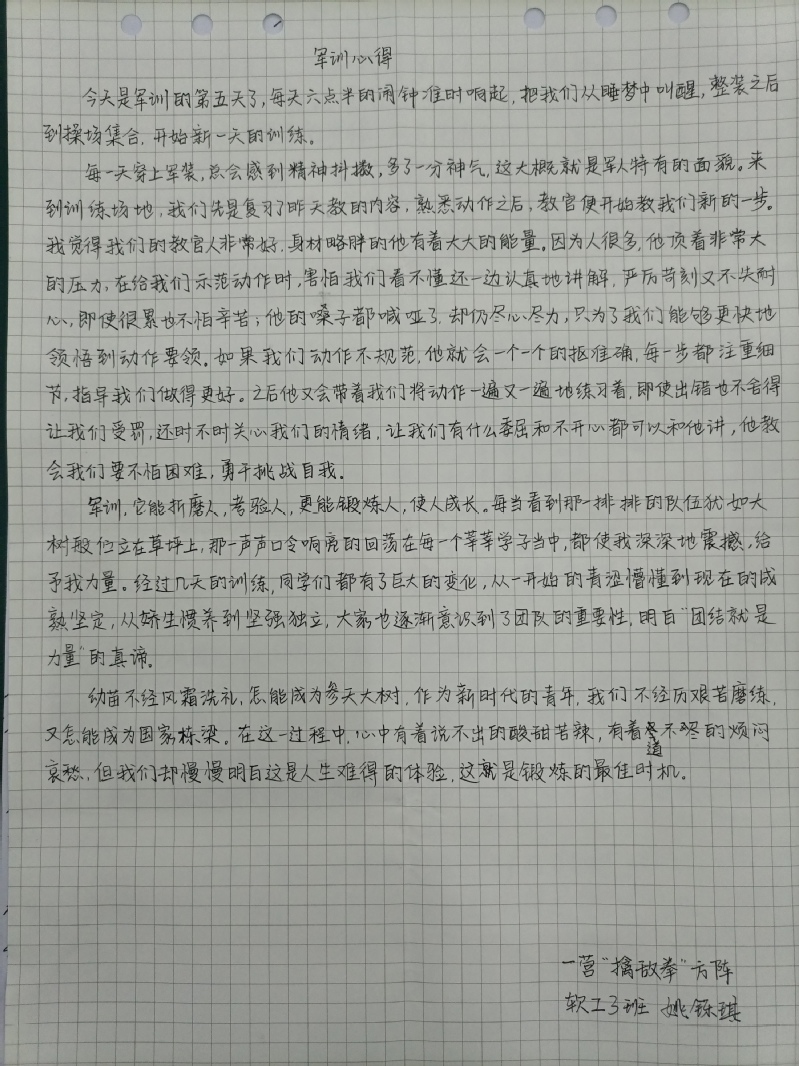 军训心得
今天是军训的第五天了，每天六点半的闹钟准时响起，把我们从睡梦中叫醒，整装之后
到操场集合，开始新一天的训练。
每一天穿上军装，总会感到精神抖擞，多了一分神气，这大概就是军人特有的面貌。来
到训练场地，我们先是复习了昨天教的内容，熟悉动作之后，教官便开始教我们新的一步。
我觉得我们的教官人非常好，身材略胖的他有着大大的能量。因为人很多，他顶着非常大
的压力，在给我们示范动作时，害怕我们看不懂还一边认真地讲解，严厉苛刻又不失耐
心，即使很累也不怕辛苦；他的嗓子都喊哑了，却仍尽心尽力，只为了我们能够更快地
领悟到动作要领。如果我们动作不规范，他就会一个一个的抠准确，每一步都注重细
节，指导我们做得更好。之后他又会带着我们将动作一遍又一遍地练习着，即使出错也不舍得
让我们受罚，还时不时关心我们的情绪，让我们有什么委屈和不开心都可以和他讲，他教
会我们要不怕困难，勇于挑战自我。
军训，它能折磨人，考验人，更能锻炼人，使人成长。每当看到那一排排的队伍犹如大
树般伫立在草坪上，那一声声口令响亮的回荡在每一个莘莘学子当中，都使我深深地震撼，给
予我力量。经过几天的训练，同学们都有了巨大的变化，从一开始的青涩懵懂到现在的成
熟坚定，从娇生惯养到坚强独立，大家也逐渐意识到了团队的重要性，明白“团结就是
力量”的真谛。
幼苗不经风霜洗礼，怎能成为参天大树，作为新时代的青年，我们不经历艰苦磨练，
又怎能成为国家栋梁。在这一过程中，心中有着说不出的酸甜苦辣，有着道不尽的烦闷
哀愁，但我们却慢慢明白这是人生难得的体验，这就是锻炼的最佳时机。
一营“擒敌拳”方阵
软工3班 姚铄琪